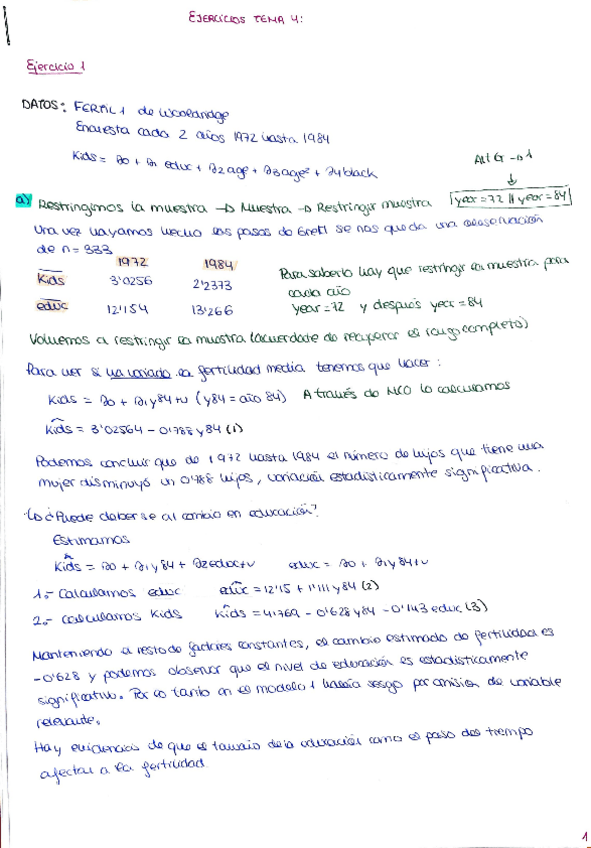 EJERCICIOS TEMA 4:
Ejercicio 1
DATOS: FERTIL 1 de Wooldridge
Encuesta cada 2 años 1972 hasta 1984
Kids = β0 + β1 educ + β2 age + β3 age² + β4 black
Alt G → 1
↓
a) Restringimos la muestra → Muestra → Restringir muestra year=72 || year=84
Una vez hayamos hecho los pasos de Gretl se nos queda una observación
de n = 333
1972 1984
Kids 3'0256 2'2373
educ 12'154 13'266
Para saberlo hay que restringir la muestra para
cada año
year=72 y después year=84
Volvemos a restringir la muestra (acuerdate de recuperar el rango completo)
Para ver si ha variado la fertilidad media tenemos que hacer:
Kids = β0 + β1 y84 + u (y84 = año 84) A través de MCO lo calculamos
Kids = 3'02564 - 0'788 y84 (1)
Podemos concluir que de 1972 hasta 1984 el número de hijos que tiene una
mujer disminuyó un 0'788 hijos, variación estadísticamente significativa.
↳ ¿Puede deberse al cambio en educación?
Estimamos
Kids = β0 + β1 y84 + β2 educ + v educ = β0 + β1 y84 + v
1.- Calculamos educ educ = 12'15 + 1'111 y84 (2)
2.- calculamos Kids Kids = 4'769 - 0'628 y84 - 0'143 educ (3)
Manteniendo el resto de factores constantes, el cambio estimado de fertilidad es
-0'628 y podemos observar que el nivel de educación es estadísticamente
significativo. Por lo tanto en el modelo 1 habría sesgo por omisión de variable
relevante.
Hay evidencias de que el tamaño de la educación como el paso del tiempo
afectan a la fertilidad
1